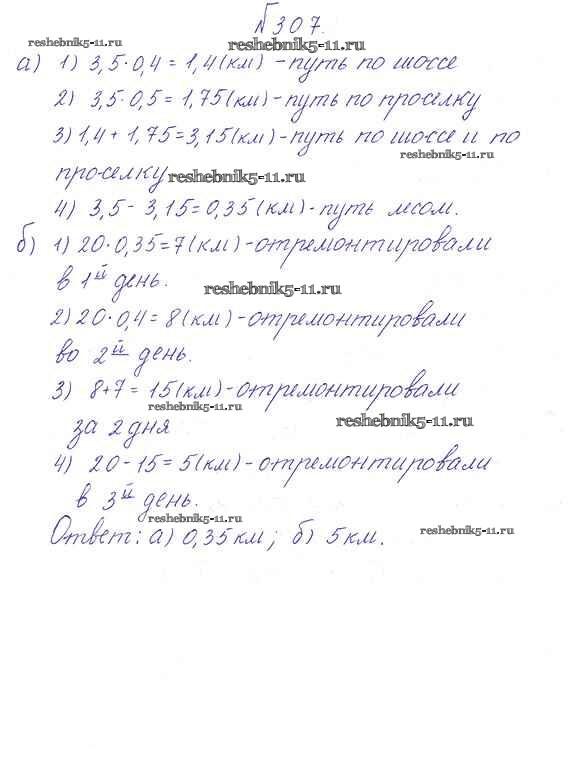 №307.
reshebnik5-11.ru
reshebnik5-11.ru
а) 1) 3,5·0,4=1,4(км) -путь по шоссе
2) 3,5·0,5=1,75(км)-путь по проселку
3) 1,4+1,75=3,15(км)-путь по шоссе и по
reshebnik5-11.ru
проселку
reshebnik5-11.ru
4) 3,5-3,15=0,35(км)-путь лесом.
б) 1) 20·0,35=7(км)-отремонтировали
в 1й день.
reshebnik5-11.ru
2) 20·0,4=8(км)-отремонтировали
во 2й день.
3) 8+7=15(км)-отремонтировали
reshebnik5-11.ru
за 2 дня
reshebnik5-11.ru
4) 20-15=5(км)-отремонтировали
в 3й день.
reshebnik5-11.ru
Ответ: а) 0,35км; б) 5км.
reshebnik5-11.ru